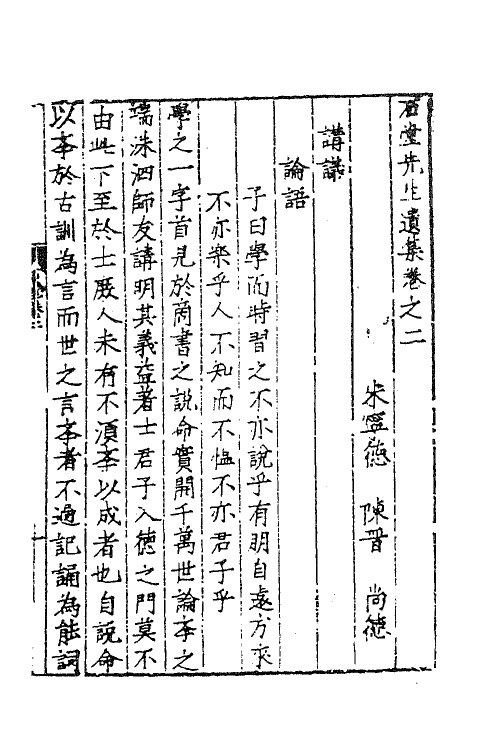 石堂先生遺集卷之二
宋寧德 陳普 尚德
講議
論語
子曰學而時習之不亦說乎有朋自遠方来
不亦樂乎人不知而不愠不亦君子乎
學之一字首見於商書之說命實開千萬世論斈之
端洙泗師友講明其義益著士君子入德之門莫不
由此下至於士庶人未有不須斈以成者也自說命
以斈於古訓為言而世之言斈者不過記誦為能詞